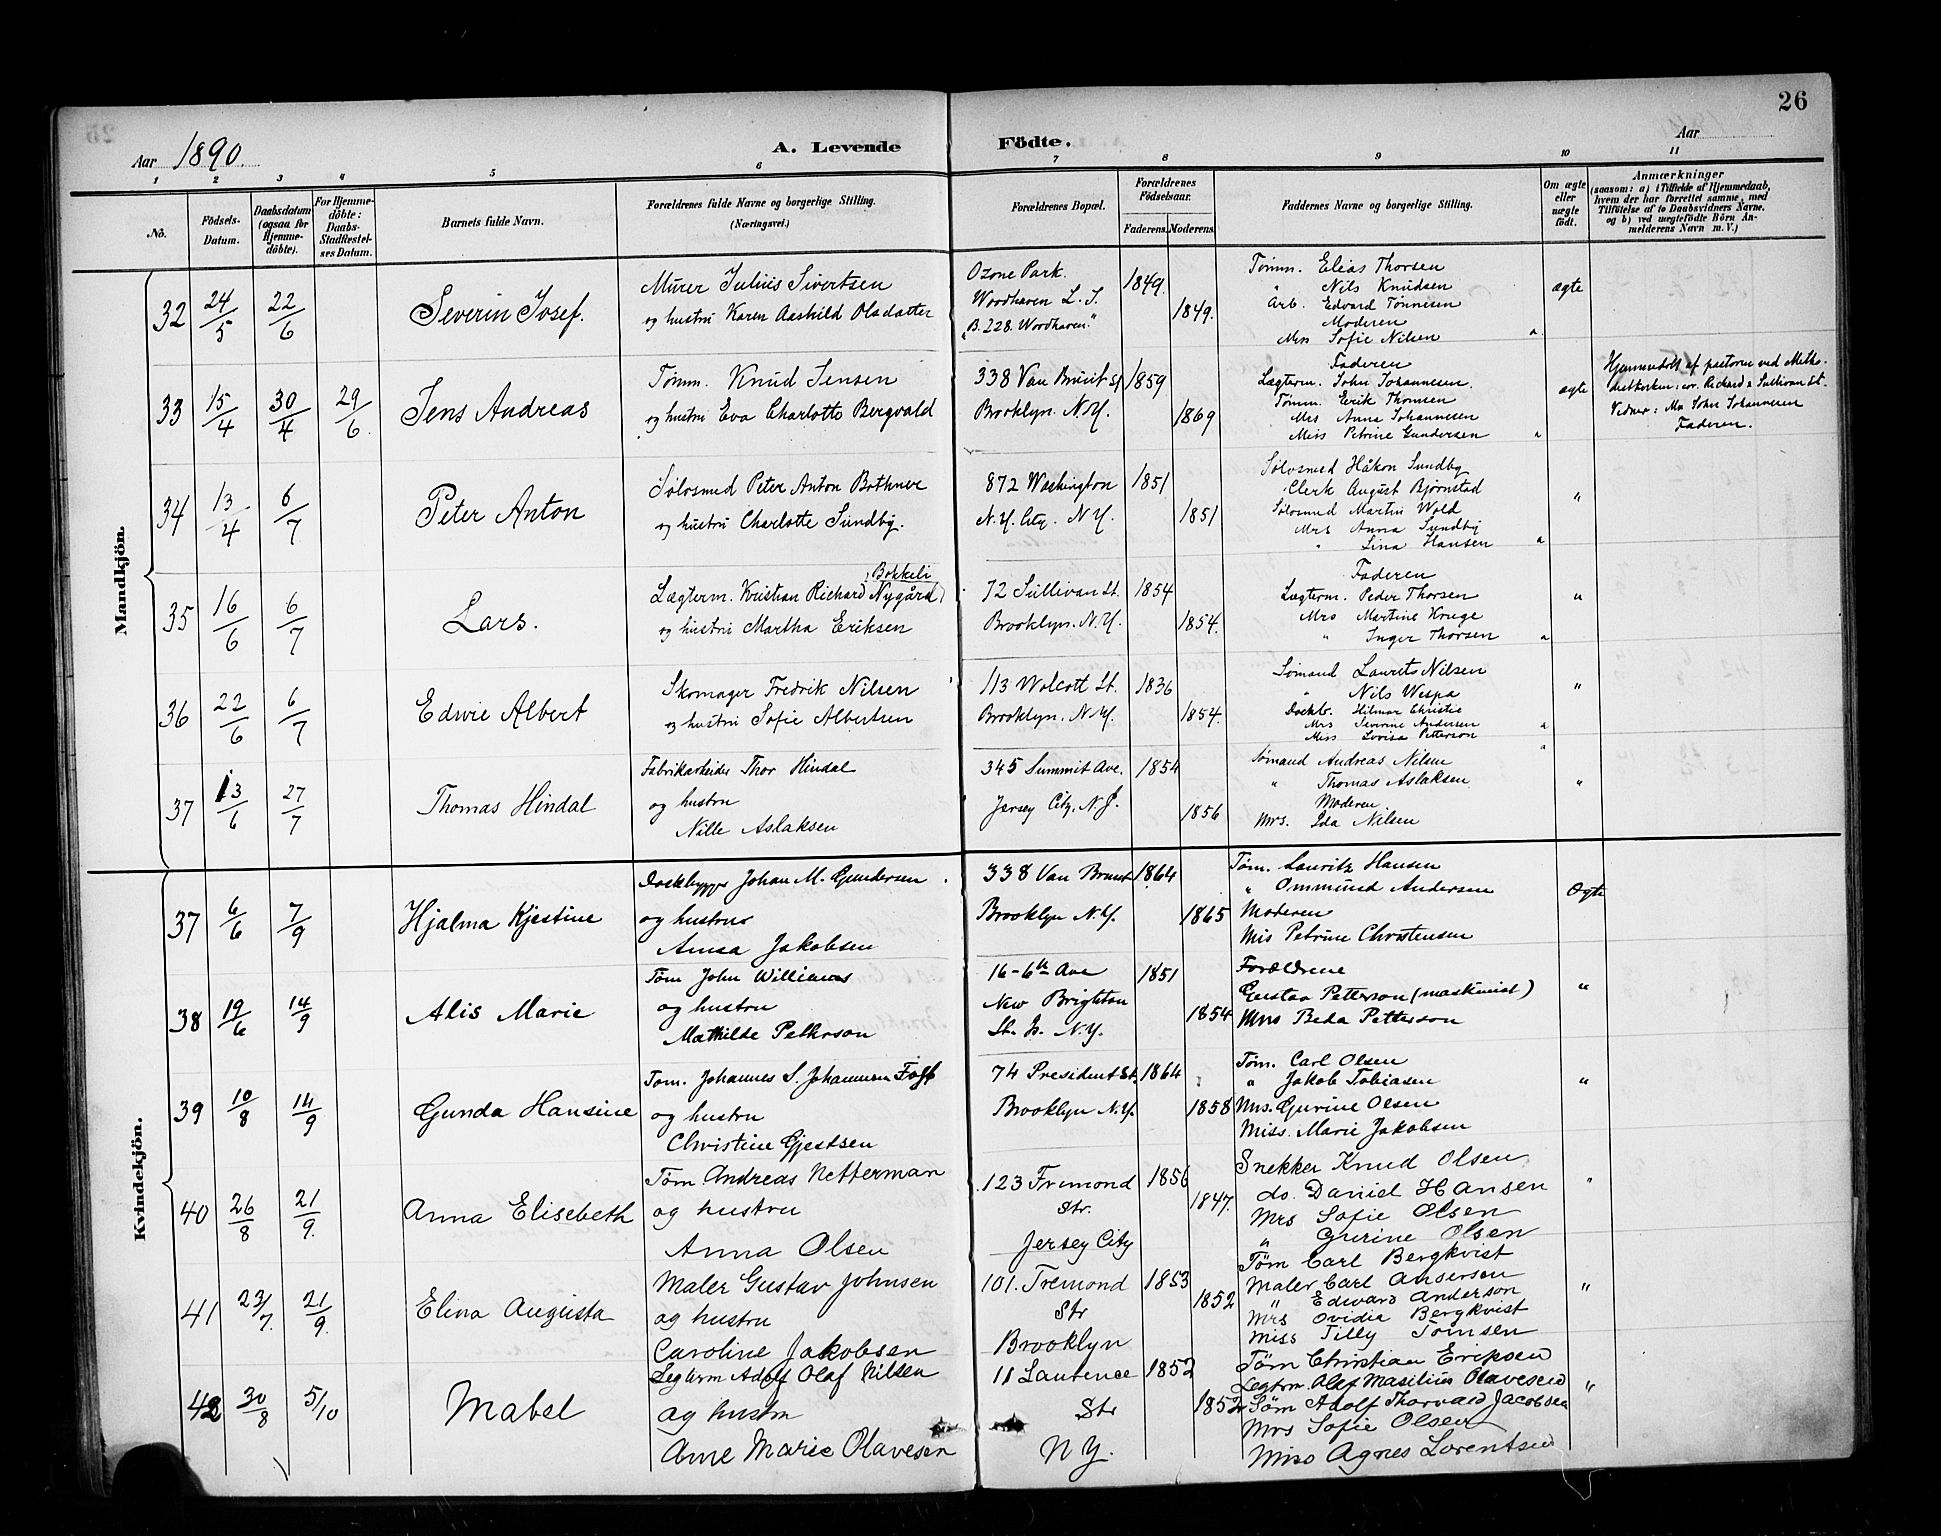 26
Aar 1890.
A. Levende Födte.
Aar
1 2 3 4 5 6 7 8 9 10 11
Nô.
Födsels-Datum.
Daabsdatum (ogsaa for Hjemme-döbte).
For Hjemme-döbte: Daabs-Stadfæstel-ses Datum.
Barnets fulde Navn.
Forældrenes fulde Navne og borgerlige Stilling.
(Næringsvei.)
Forældrenes Bopæl.
Forældrenes Födselsaar.
Faderens. Moderens.
Faddernes Navne og borgerlige Stilling.
Om ægte eller uægte födt.
Anmærkninger
(saasom: a) i Tilfælde af Hjemmedaab, hvem der har forrettet samme, med Tilföielse af to Daabsvidners Navne. og b) ved uægtefödte Börn An-melderens Navn m. V.)
Mandkjön.
32 24/5 22/6 Severin Josef.
Murer Julius Sivertsen
og hustru Karen Aashild Olsdatter
Ozone Park.
Woodhaven L. I.
"B. 228. Woodhaven."
1849. 1849.
Tømm. Elias Thorsen
" Nils Knudsen
Arb. Edvard Tønnesen
Moderen
Mrs Sofie Nilsen
ægte
33 15/4 30/4 29/6. Jens Andreas
Tømm. Knud Jensen
og hustru Eva Charlotte Bergvald
338 Van Brunt St
Brooklyn. N.Y.
1859 1869
Faderen
Lægterm. John Johannesen.
Tømm. Erik Thomsen
Mrs Anna Johannesen
Miss Petrine Gundersen
ægte
Hjemmedøbt af pastorne ved Metho-
distkirken, cor. Richard & Sullivan St.
Vidner: Mrs John Johannesen
Faderen.
34 13/4 6/7 Peter Anton
Sølvsmed Peter Anton Bothner
og hustru Charlotte Sundby.
872 Washington
N.Y. City. N.Y.
1851 1851
Sølvsmed Håkon Sundby
Clerk August Bjørnstad
Sølvsmed Martin Wold
Mrs Anna Sundby
" Lina Hansen
"
35 16/6 6/7 Lars.
Bokkeli
Lægterm. Kristian Richard Nygård
og hustru Martha Eriksen
72 Sullivan St.
Brooklyn. N.Y.
1854 1854.
Faderen
Lægterm. Peder Thorsen
Mrs Martine Kruge
" Inger Thorsen
"
36 22/6 6/7 Edwie Albert
Skomager Fredrik Nilsen
og hustru Sofie Albertsen
113 Wolcott St.
Brooklyn. N.Y.
1836 1854.
Sømand Laurits Nilsen
" Nils Wespa
Dockb. Hilmar Christie
Mrs Severine Andersen
Miss Lovisa Petterson
"
37 13/6 27/7 Thomas Hindal
Fabrikarbeider Thor Hindal
og hustru
Nille Aslaksen
345 Summit Ave.
Jersey City, N.J.
1854 1856
Sømand Andreas Nilsen
" Thomas Aslaksen
Moderen
Mrs. Ida Nilsen
"
Kvindekjön.
37 6/6 7/9 Hjalma Kjestine
Dockbygger Johan M. Gundersen
og hustru
Anna Jakobsen
338 Van Brunt
Brooklyn N.Y.
1864 1865
Tøm. Lauritz Hansen
" Ommund Andersen
Moderen
Mis Petrine Christensen
Øgte
38 19/6 14/9 Alis Marie
Tøm John Williams
og hustru
Mathilde Petterson
16-6th Ave
New Brighton
St. Is. N.Y.
1851 1854
Forældrene
Gustav Petterson (maskinist)
Mrs Beda Petterson
"
39 10/8 14/9 Gunda Hansine
Tøm. Johannes S. Johannesen
og hustru
Christine Gjestsen
74 President St.
Brooklyn N.Y.
1864 1858
Tøm. Carl Olsen
" Jakob Tobiasen
Mrs. Gurine Olsen
Miss. Marie Jakobsen
"
40 26/8 21/9. Anna Elisebeth
Tøm. Andreas Netterman
og hustru
Anna Olsen
123 Fremond
Str.
Jersey City
1856 1847.
Snekker Knud Olsen
do. Daniel Hansen
Mrs Sofie Olsen
" Gurine Olsen
"
41 23/7. 21/9. Elina Augusta
Maler Gustav Johnsen
og hustru
Caroline Jakobsen
101. Tremond
Str
Brooklyn
1853 1852
Tøm Carl Bergkvist
Maler Carl Andersen
" Edward Anderson
Mrs Ovidia Bergkvist
Miss Tilly Tømsen
"
42 30/8 5/10 Mabel
Legterm Adolf Olaf Nilsen
og hustru
Ane Marie Olavesen
11 Laurence
Str
N Y.
1852 1852
Tøm Christian Eriksen
Legtrm. Olaf Masilius Olavesen
Søm Adolf Thorvald Jacobsen
Mrs Sofie Olsen
Miss Agnes Lorentsen
"